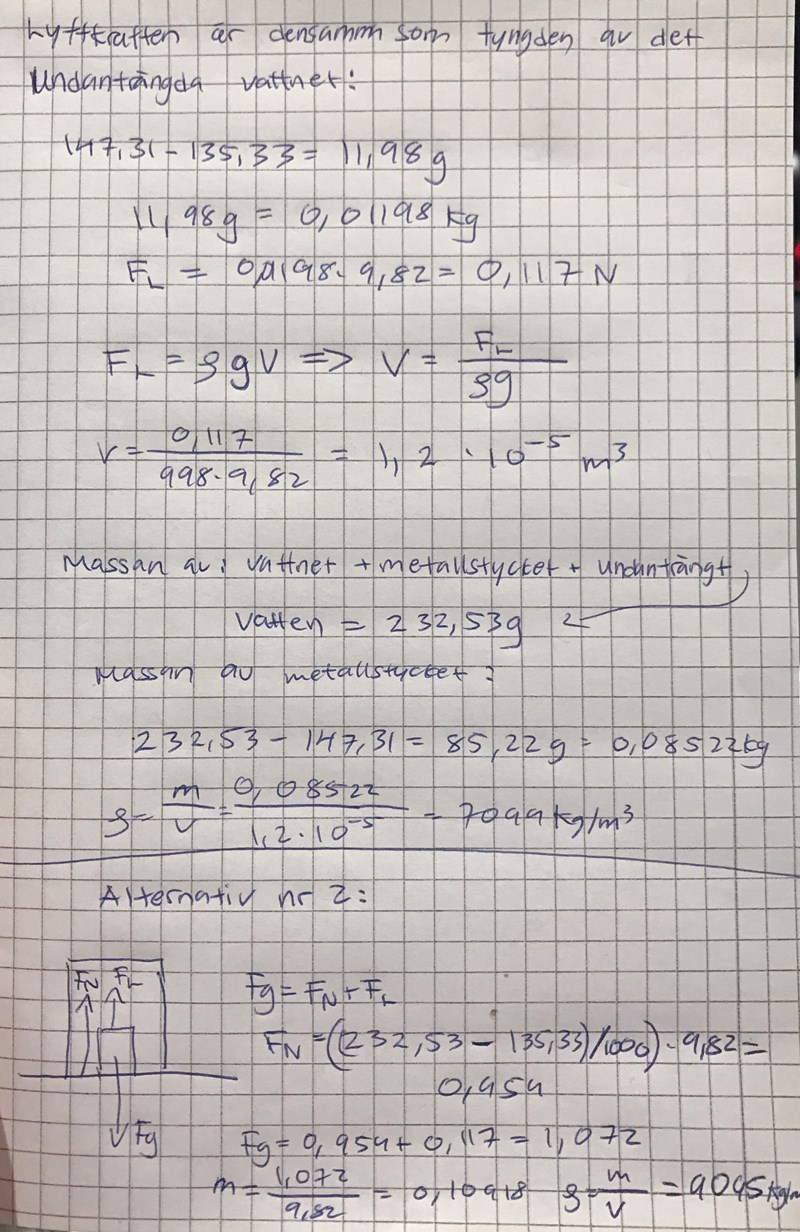 Lyftkraften är densamm som tyngden av det
Undanträngda vattnet:
147,31 - 135,33 = 11,98 g
11,98 g = 0,01198 kg
F_L = 0,01198 · 9,82 = 0,117 N
F_L = ρgV => V = F_L / ρg
V = 0,117 / 998·9,82 = 1,2 · 10^-5 m³
Massan av: vattnet + metallstycket + undanträngt
vatten = 232,53g
Massan av metallstycket:
232,53 - 147,31 = 85,22 g = 0,08522 kg
ρ = m / V = 0,08522 / 1,2·10^-5 = 7099 kg/m³
Alternativ nr 2:
F_N F_L
Fg = F_N + F_L
F_N = ((232,53 - 135,33)/1000) · 9,82 =
0,954
Fg
Fg = 0,954 + 0,117 = 1,072
m = 1,072 / 9,82 = 0,10918 ρ = m / V = 9095 kg/m